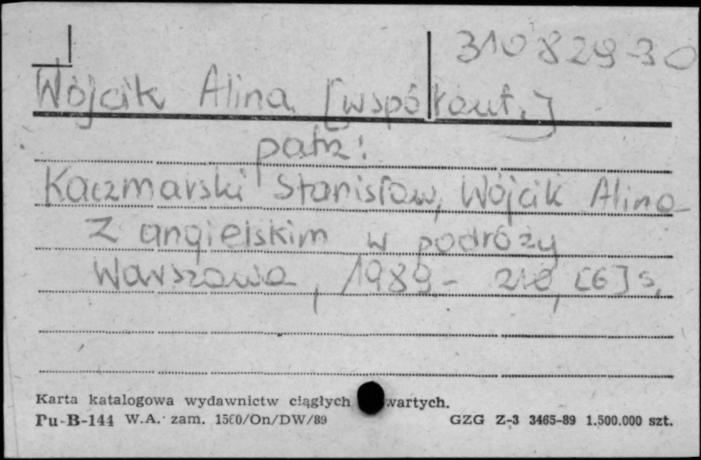 310829-30
Wójcik Alina [współaut.]
patrz:
Kaczmarski Stanisław, Wójcik Alina
Z angielskim w podróży
Warszawa, 1989 - 218, [6] s.
Karta katalogowa wydawnictw ciągłych wartych.
Pu-B-144 W.A. zam. 1500/On/DW/89 GZG Z-3 3465-89 1.500.000 szt.